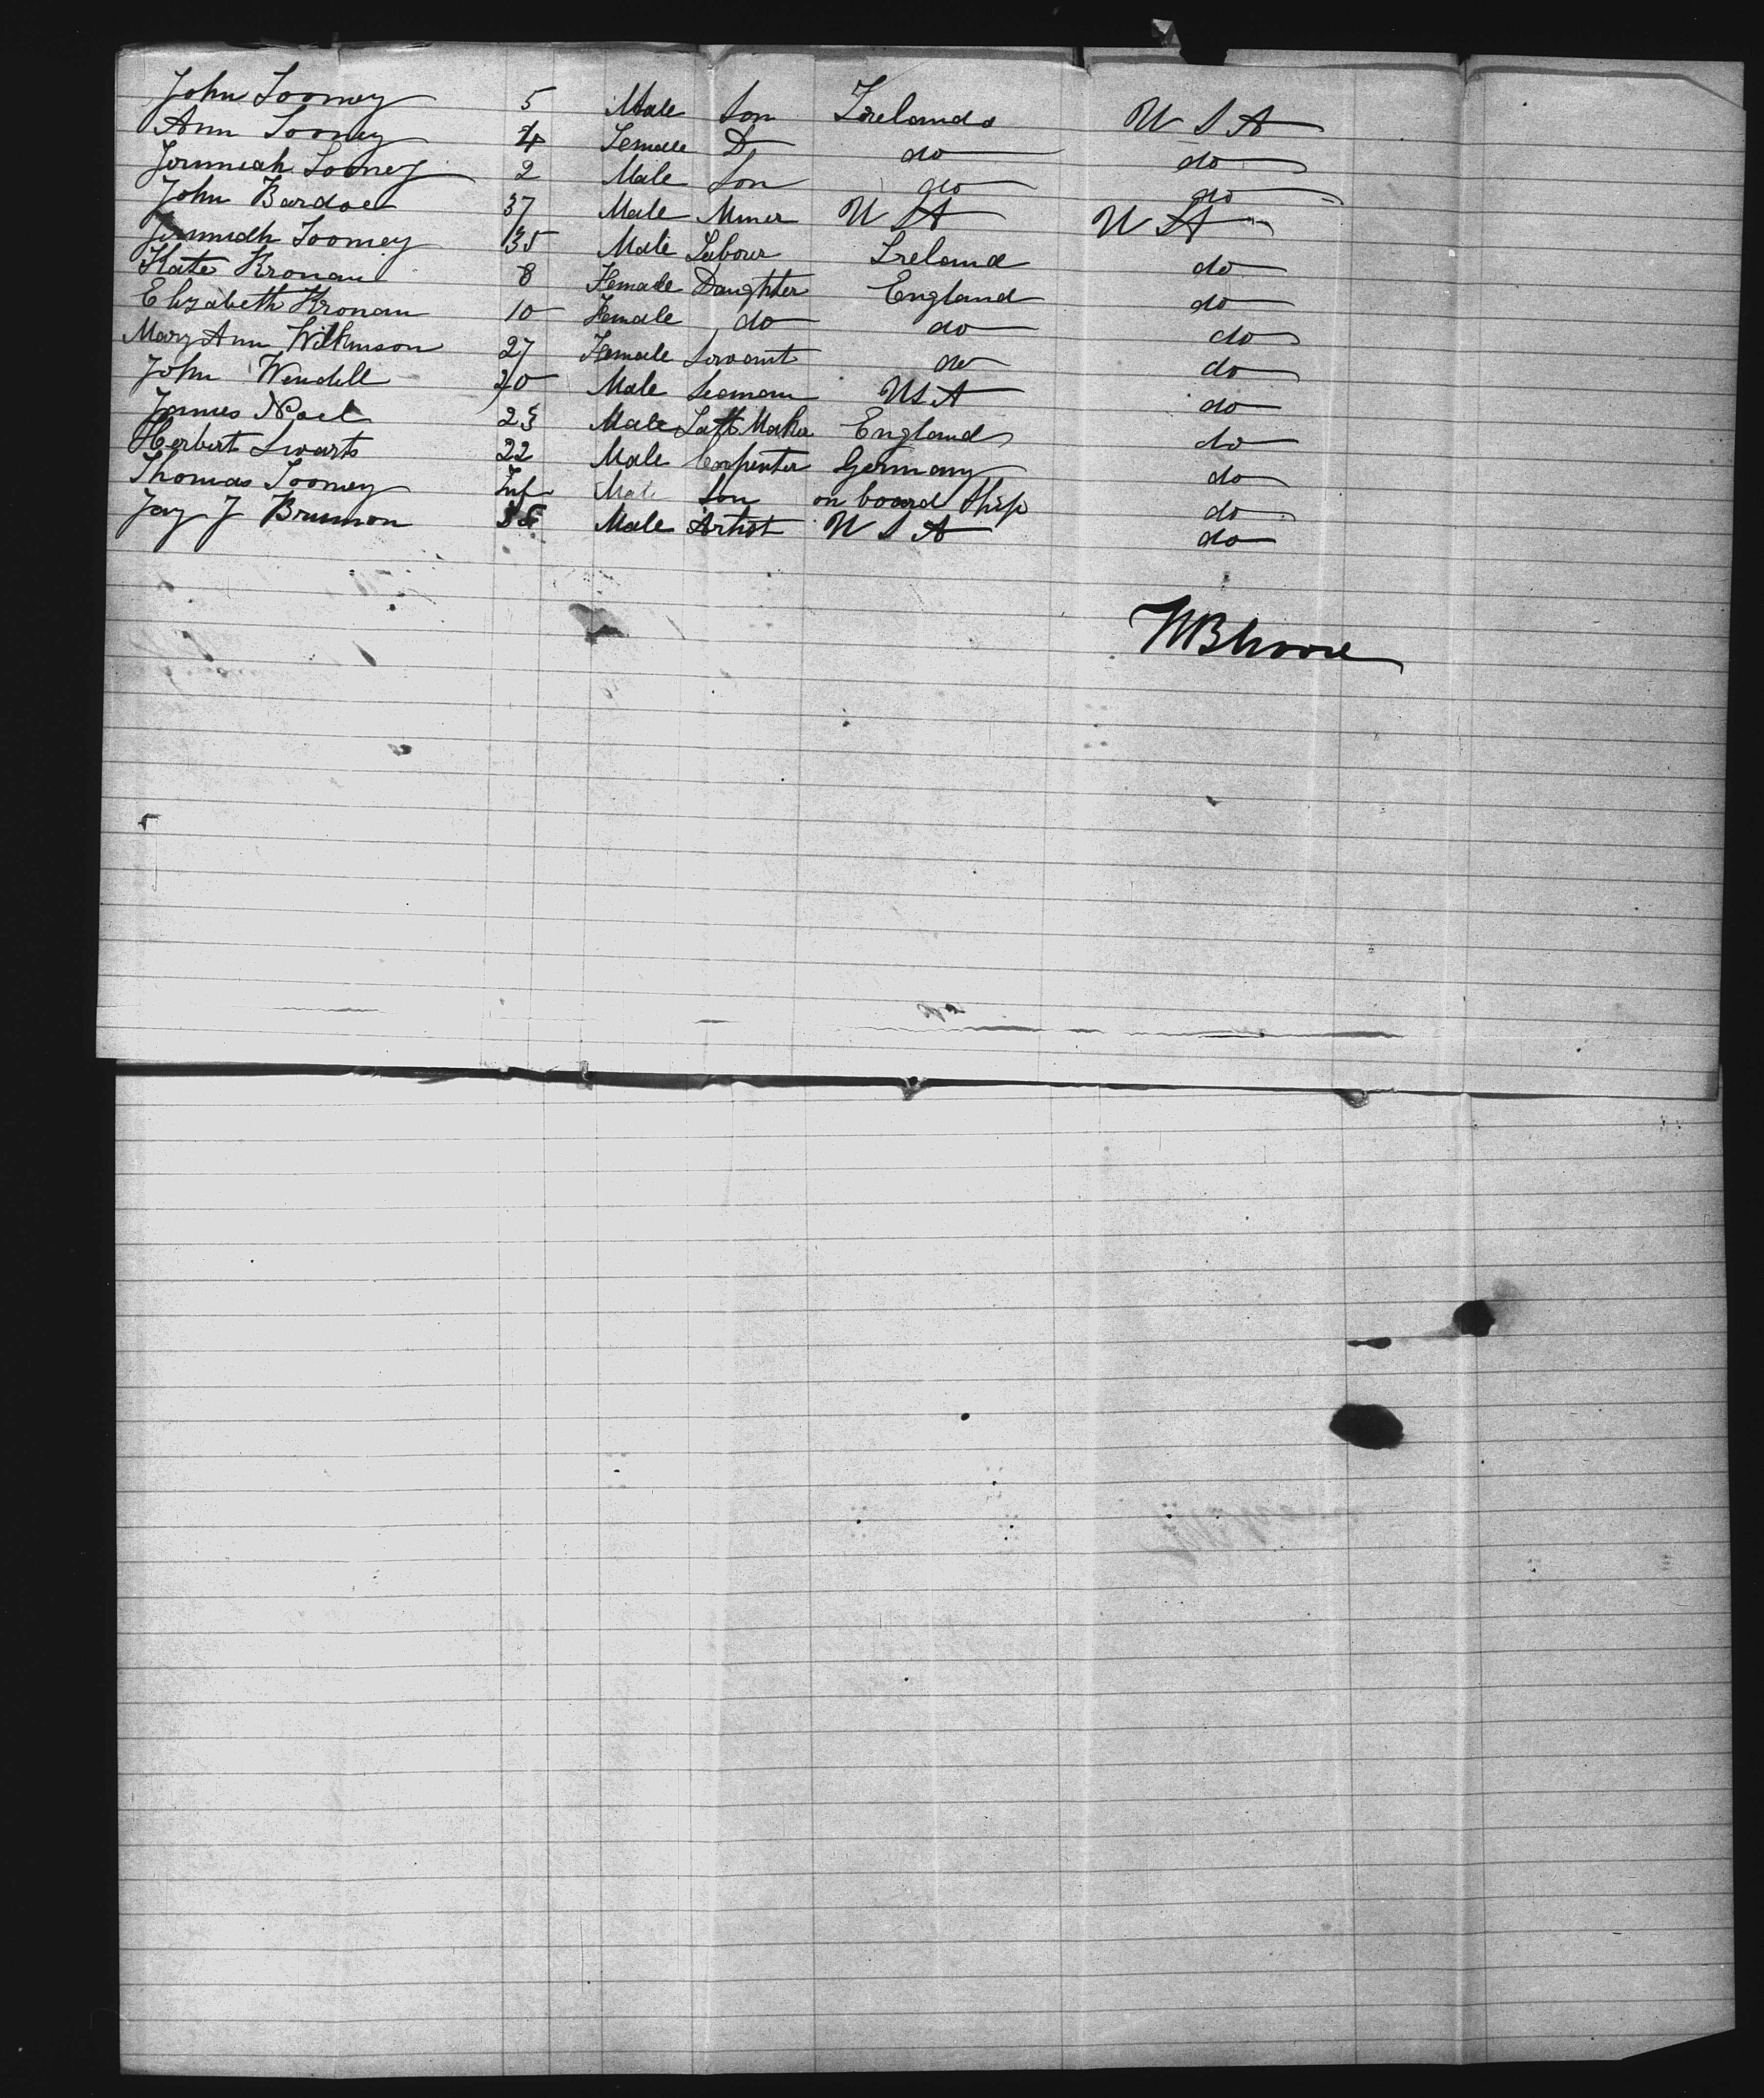 John Toomey 5 Male Son Ireland U S A
Ann Toomey 4 Female D do do
Jerimiah Toomey 2 Male Son do do
John Bardoe 37 Male Miner U S A U S A
Jerimidh Toomey 35 Male Labour Ireland do
Kate Kronan 8 Female Daughter England do
Elizabeth Kronan 10 Female do do do
Mary Ann Wilkinson 27 Female Servant do do
John Wendell 20 Male Seaman U S A do
James Noel 23 Male Maker England do
Herbert Swarts 22 Male Carpenter Germany do
Thomas Toomey Inf Male Son on board Ship do
Jay J Male Artist U S A do